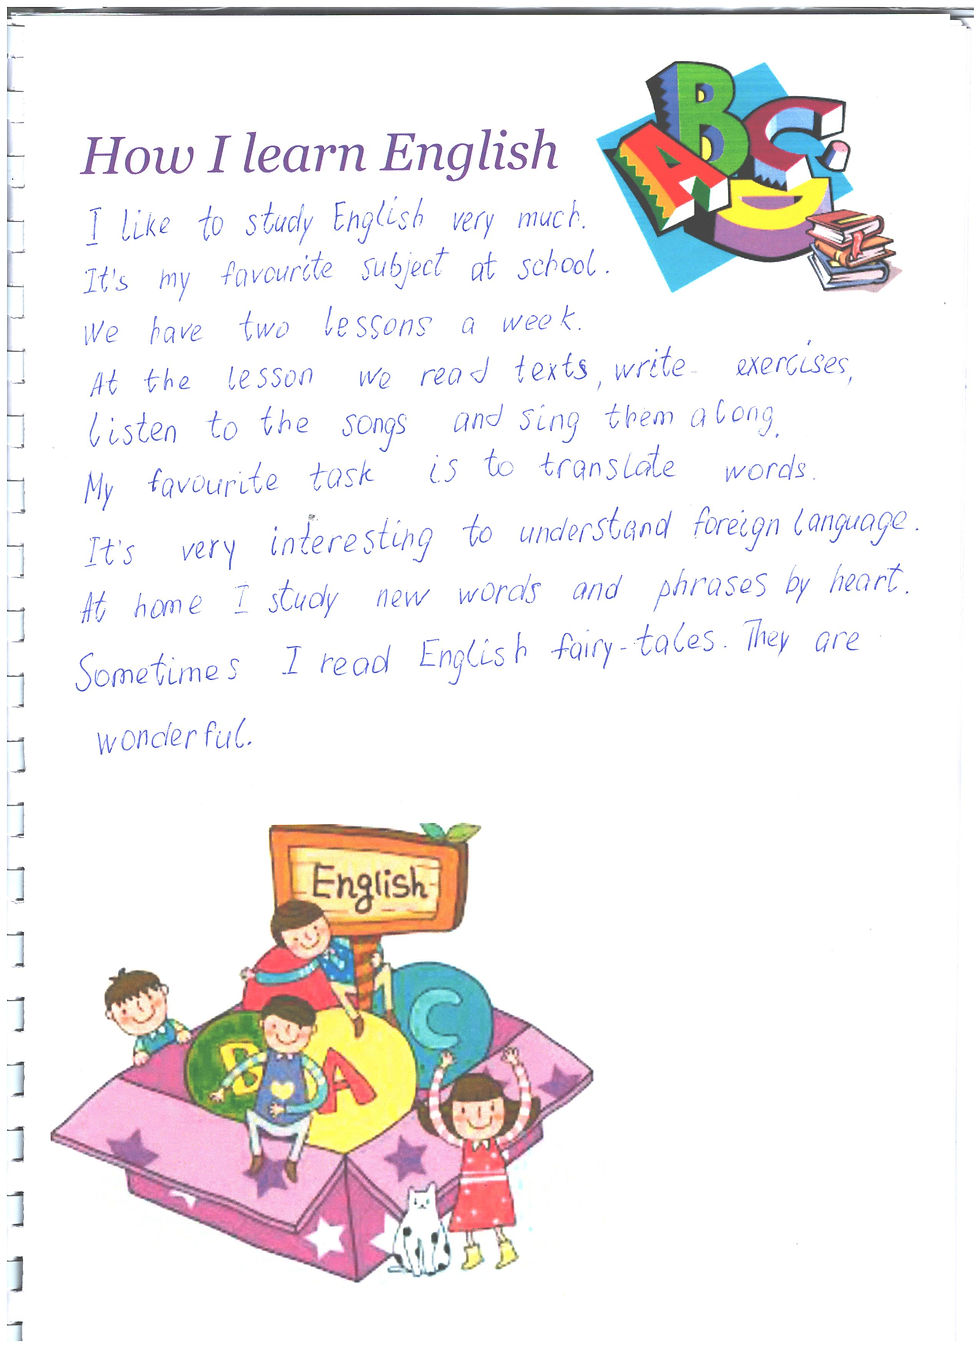 How I learn English
I like to study English very much.
It's my favourite subject at school.
We have two lessons a week.
At the lesson we read texts, write exercises,
listen to the songs and sing them along.
My favourite task is to translate words.
It's very interesting to understand foreign language.
At home I study new words and phrases by heart.
Sometimes I read English fairy-tales. They are
wonderful.
A B C D
English
B A C